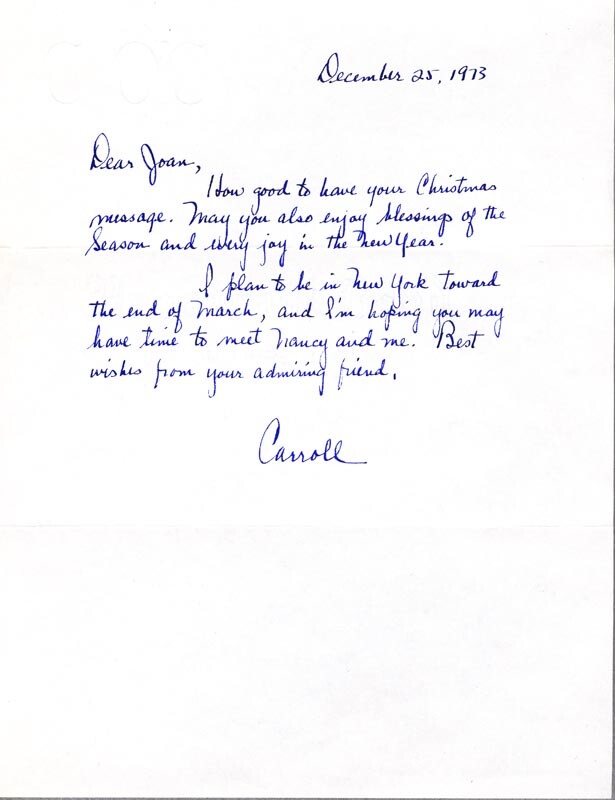 December 25, 1973
Dear Joan,
How good to have your Christmas
message. May you also enjoy blessings of the
Season and every joy in the New Year.
I plan to be in New York toward
the end of March, and I'm hoping you may
have time to meet Nancy and me. Best
wishes from your admiring friend,
Carroll